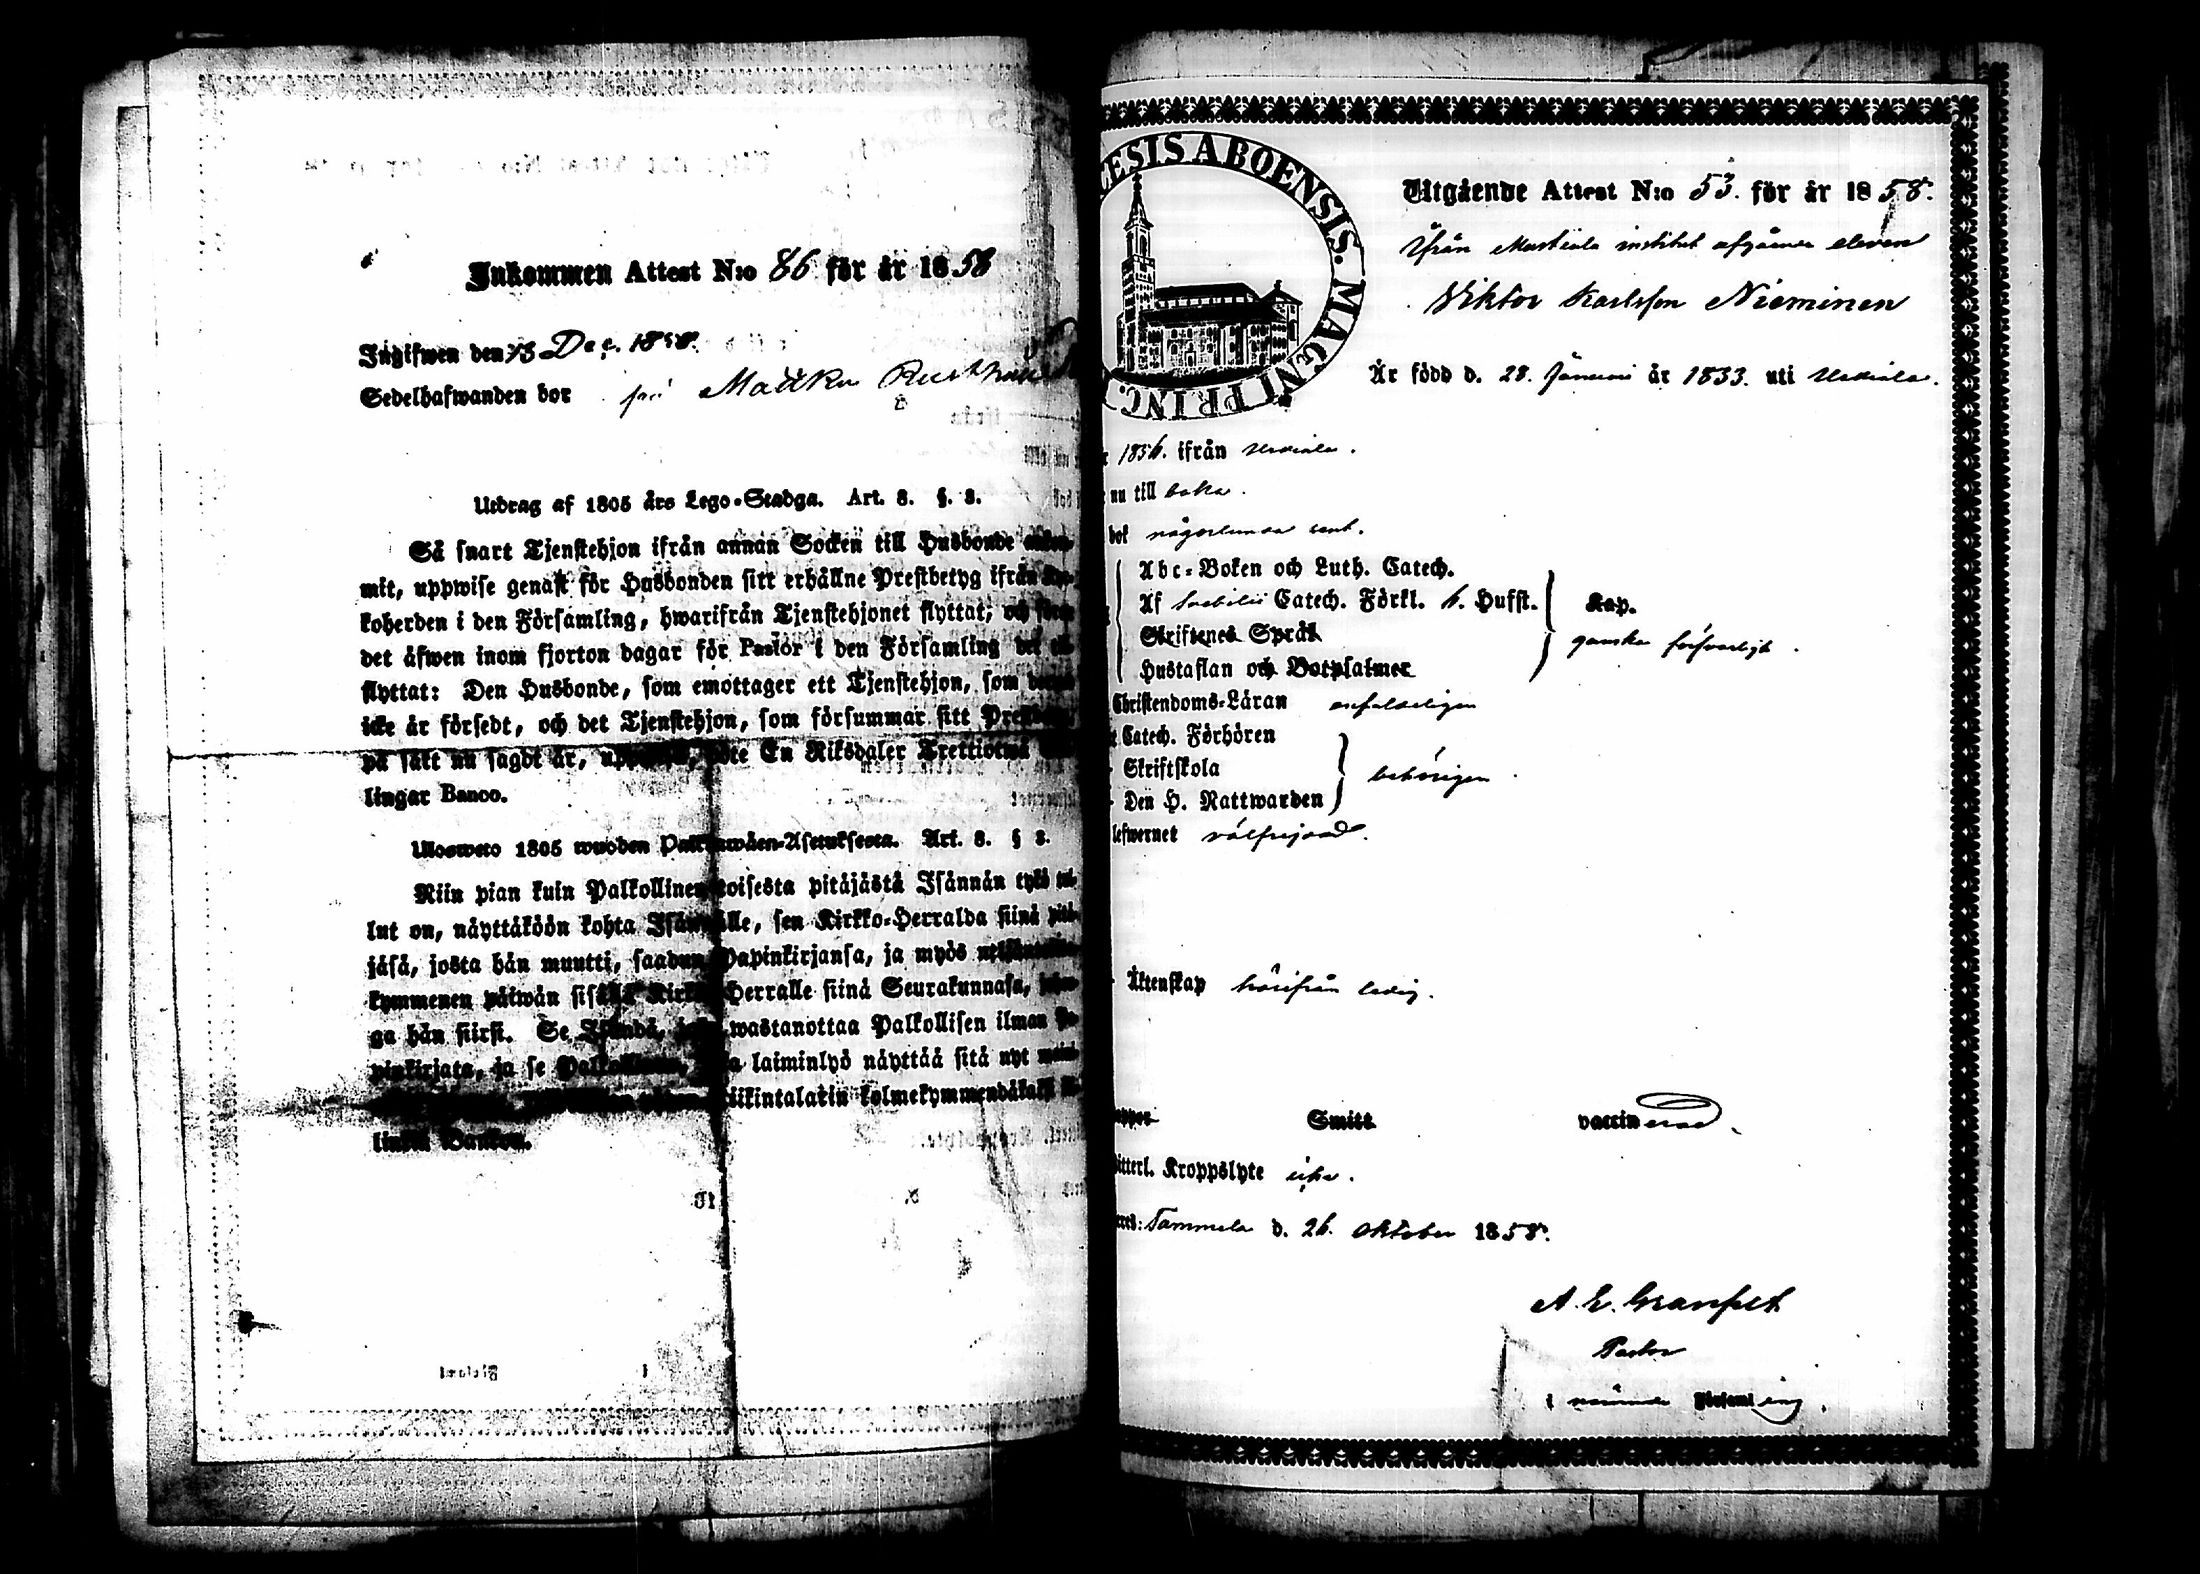 Inkommen Attest N:o 86 för år 1858
Ingifwen den 13 Dec. 1858.
Sedelhafwanden bor på
Utdrag af 1805 års Lego-Stadga. Art. 8. §. 8.
Så snart Tjenstehjon ifrån annan Socken till Husbonde
mit, uppwise genast för Husbonden sitt erhållne Prestbetyg ifrån
koherden i den Församling, hwarifrån Tjenstehjonet flyttat; och
det äfwen inom fjorton dagar för Pastor i den Församling
flyttat: Den Husbonde, som emottager ett Tjenstehjon, som
icke är försedt, och det Tjenstehjon, som försummar sitt
på sätt nu sagdt är, En Riksdaler Trettiotwå
lingar Banco.
Ulosweto 1805 wuoden Art. 8. § 8.
Niin pian kuin Palkollinen toisesta pitäjästä Isännän tykö
lut on, näyttäköön kohta sen Kirkko-Herralda siinä
jäsä, josta hän muutti, saadun Papinkirjansa, ja myös
kymmenen päiwän sisällä Herralle siinä Seurakunnasa,
ga hän siirsi. Se wastanottaa Palkollisen ilman
pinkirjata, ja se laiminlyö näyttää sitä nyt
kolmekymmendäkaksi
Bankoa.
CESIS ABOENSIS. MAGNI PRINC.
Utgående Attest N:o 53. för år 1858.
Ifrån Mustiala institut afgående eleven
Viktor Karlsson Nieminen
Är född d. 28. Januari år 1833. uti Urdiala.
1856. ifrån Urdiala.
nu till
bok någorlunda rent.
Abc-Boken och Luth. Catech.
Af Svebilii Catech. Förkl. 6. Hufst. Kap.
Skriftenes Språk
ganska försvarligt.
Hustaflan och Botpsalmer
Christendoms-Läran enfaldeligen
Catech. Förhören
Skriftskola
behörigen.
Den H. Nattwarden
lefwernet välfrejdad.
Äktenskap härifrån ledig.
Smitt
vaccinerad.
Kroppslyte icke.
Tammela d. 26. Oktober 1858.
A. E. Granfelt
Pastor
i nämnde Församling.